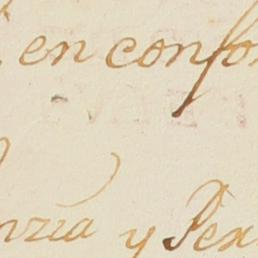 en confor
nzia y Pex